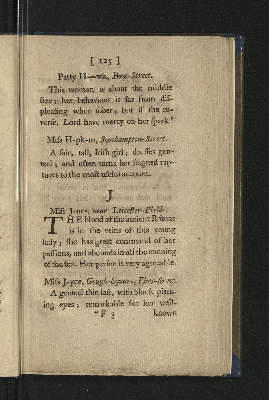 [ 125 ]
Patty H——, Bow-Street.
This woman is about the middle
size; her behaviour is far from dis-
pleasing when sober; but if the re-
verse, Lord have mercy on her spark!
Miss H-pk-ns, Southampton-Street.
A fair, tall, Irish girl; dresses gen-
teel; and often turns her feigned rap-
tures to the most useful account.
J
Miss J-nes, near Leicester-Fields.
THE blood of the ancient Britons
is in the veins of this young
lady; she has great command of her
passions, and abounds in all the cunning
of the sex. Her person is very agreeable.
Miss J-yce, Gough-Square, Fleet-street.
A genteel thin lass, with black pierc-
ing eyes; remarkable for her well-
F 3 known